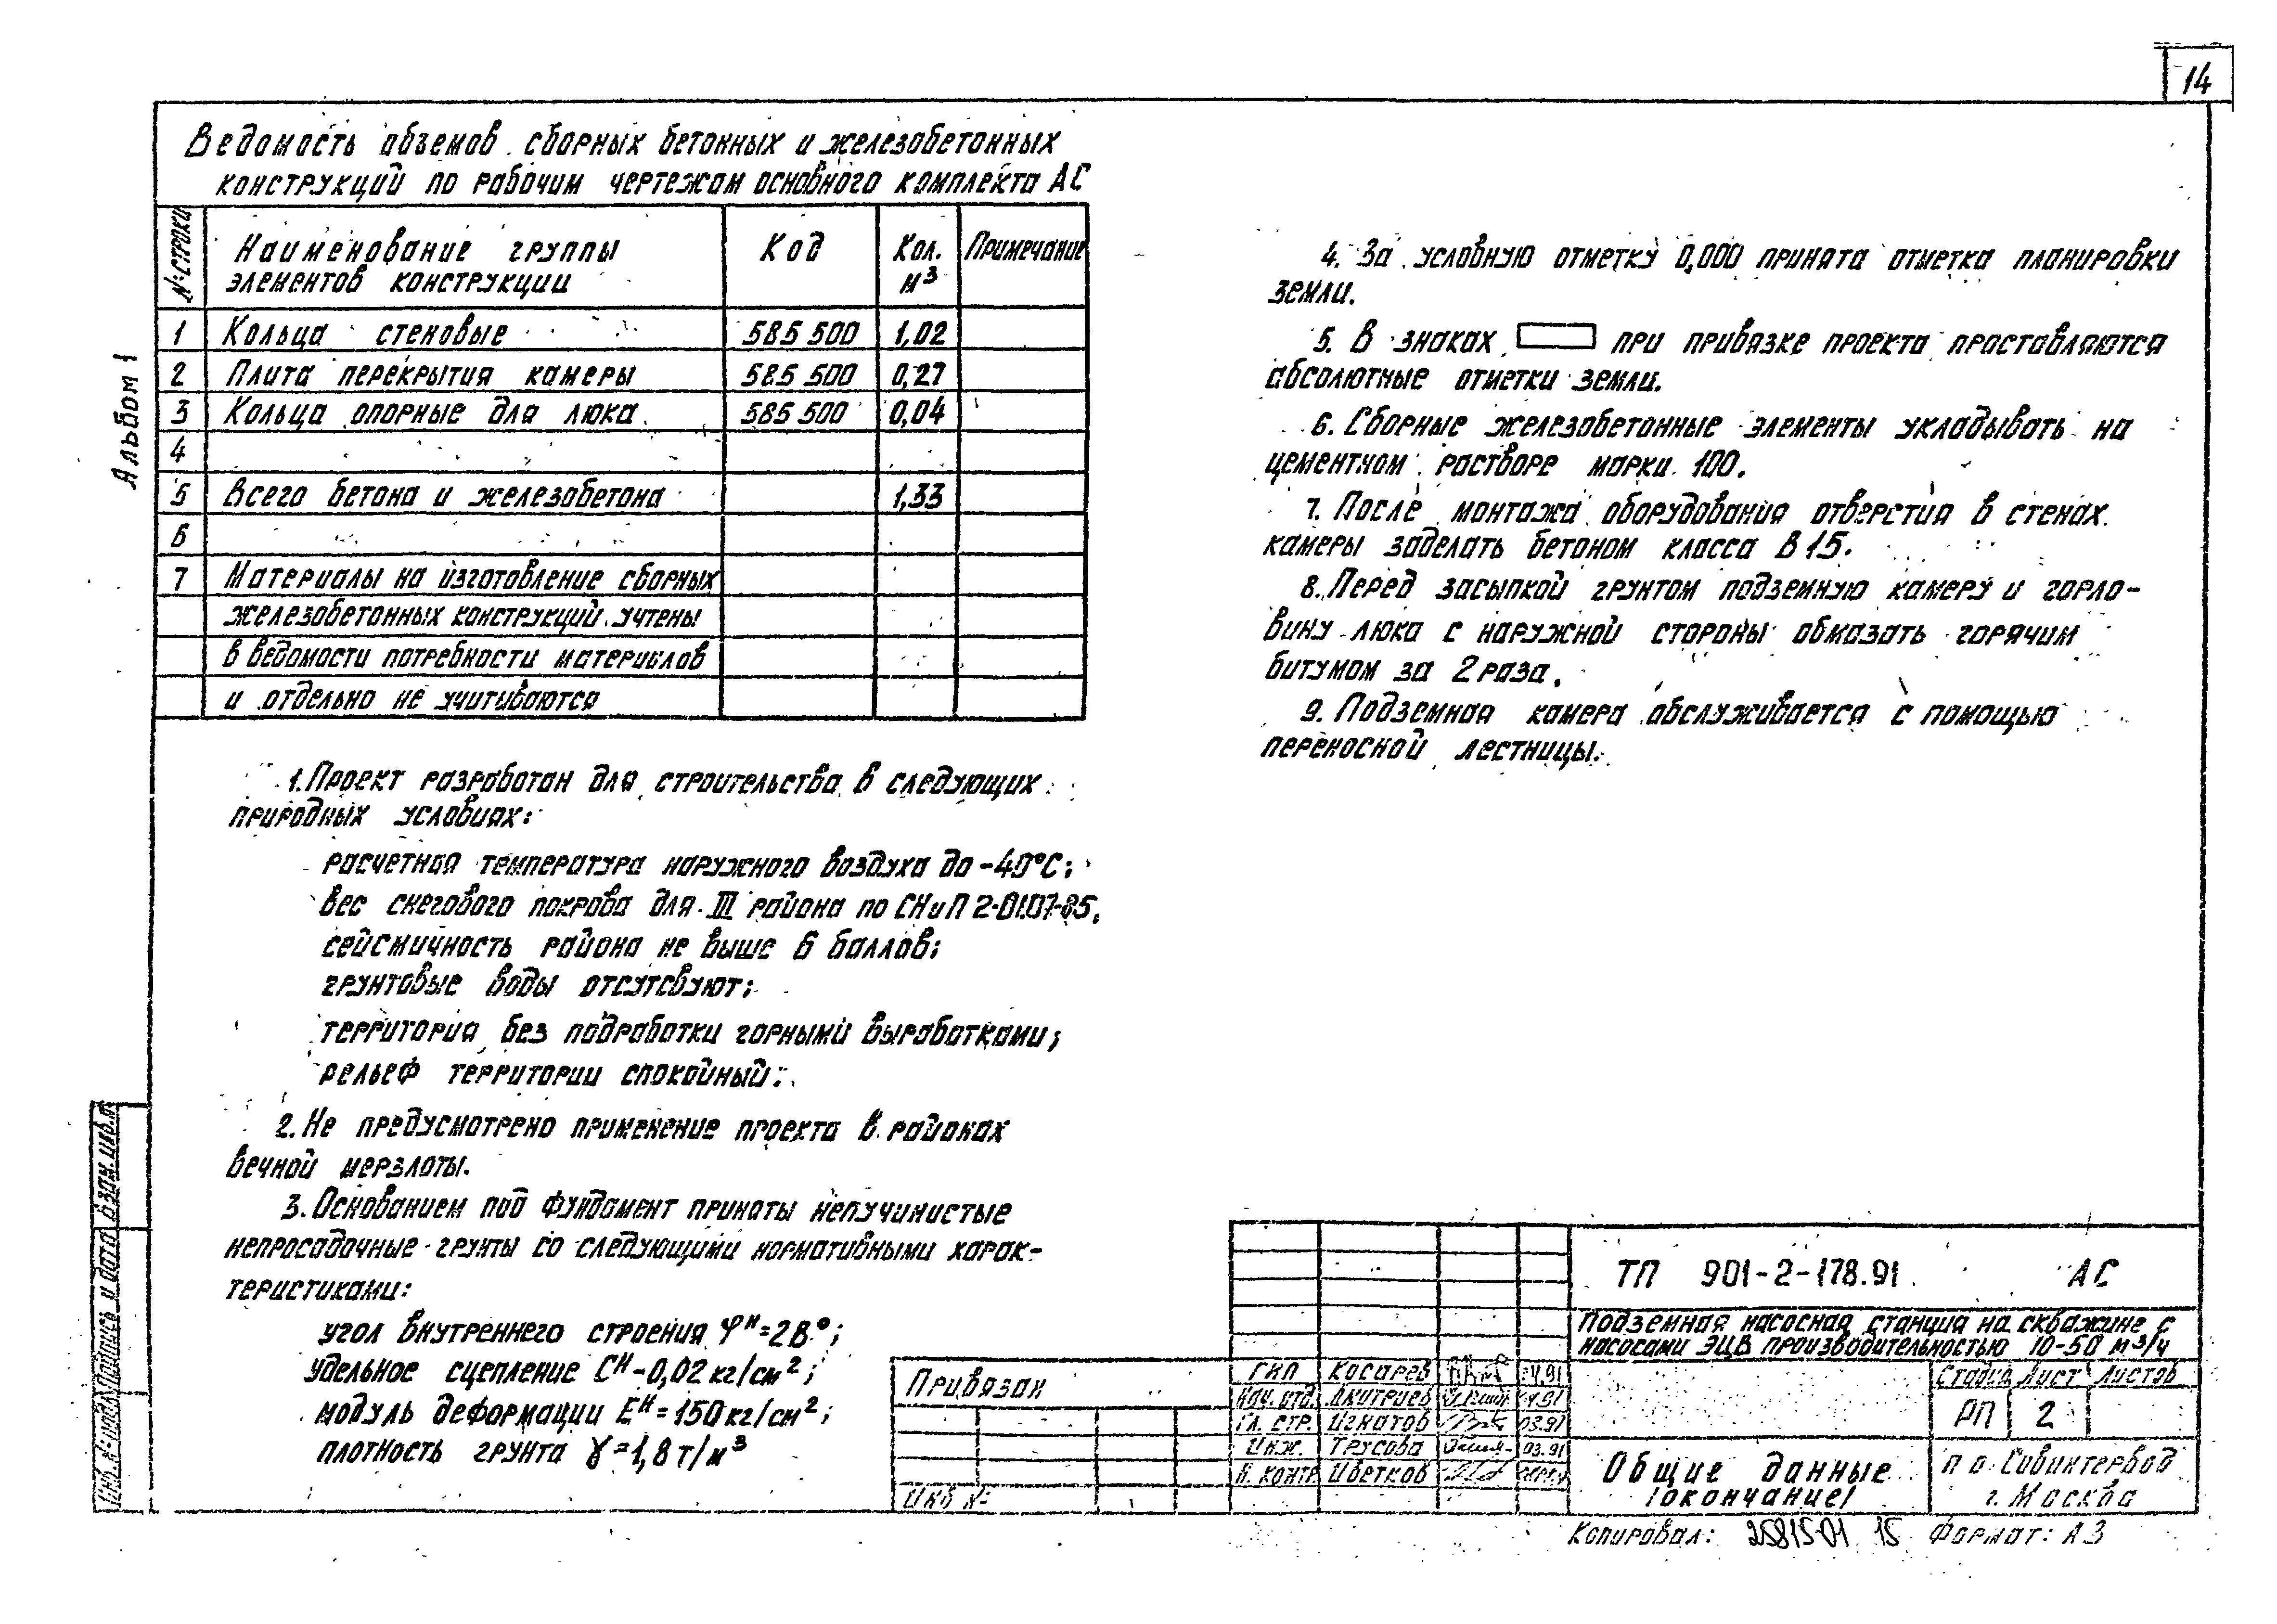 14
Альбом 1
Ведомость обземов сборных бетонных и железобетонных
конструкций по рабочим чертежам основного комплекта АС
№ строки
Наименование группы
элементов конструкции
Код
Кол.
м³
Примечание
1 Кольца стеновые 585 500 1,02
2 Плита перекрытия камеры 585 500 0,27
3 Кольца опорные для люка 585 500 0,04
4
5 Всего бетона и железобетона 1,33
6
7 Материалы на изготовление сборных
железобетонных конструкций учтены
в ведомости потребности материалов
и отдельно не учитываются
1. Проект разработан для строительства в следующих
природных условиях:
расчетная температура наружного воздуха до -40°С;
вес снегового покрова для III района по СНиП 2.01.07-85,
сейсмичность района не выше 6 баллов;
грунтовые воды отсутсвуют;
территория без подработки горными выработками;
рельеф территории спокойный.
2. Не предусмотрено применение проекта в районах
вечной мерзлоты.
3. Основанием под фундамент приняты непучинистые
непросадочные грунты со следующими нормативными харак-
теристиками:
угол внутреннего строения φᴴ=28°;
удельное сцепление Сᴴ-0,02 кг/см²;
модуль деформации Еᴴ=150 кг/см²;
плотность грунта γ=1,8 т/м³
4. За условную отметку 0,000 принята отметка планировки
земли.
5. В знаках при привязке проекта проставляются
абсолютные отметки земли.
6. Сборные железобетонные элементы укладывать на
цементном растворе марки 100.
7. После монтажа оборудования отверстия в стенах
камеры заделать бетоном класса В15.
8. Перед засыпкой грунтом подземную камеру и горло-
вину люка с наружной стороны обмазать горячим
битумом за 2 раза.
9. Подземная камера обслуживается с помощью
переносной лестницы.
Взам. инв. №
Подпись и дата
Инв. № подл.
Привязан
Инв №
ГИП Косарев 04.91
Нач. отд. Дмитриев 04.91
Гл. стр. Игнатов 03.91
Инж. Трусова 03.91
Н. контр Цветков
ТП 901-2-178.91 АС
Подземная насосная станция на скважине с
насосами ЭЦВ производительностью 10-50 м³/ч
Стадия Лист Листов
РП 2
Общие данные
/окончание/
п о Совинтервод
г. Москва
Копировал: 25815-01 15 Формат: А3